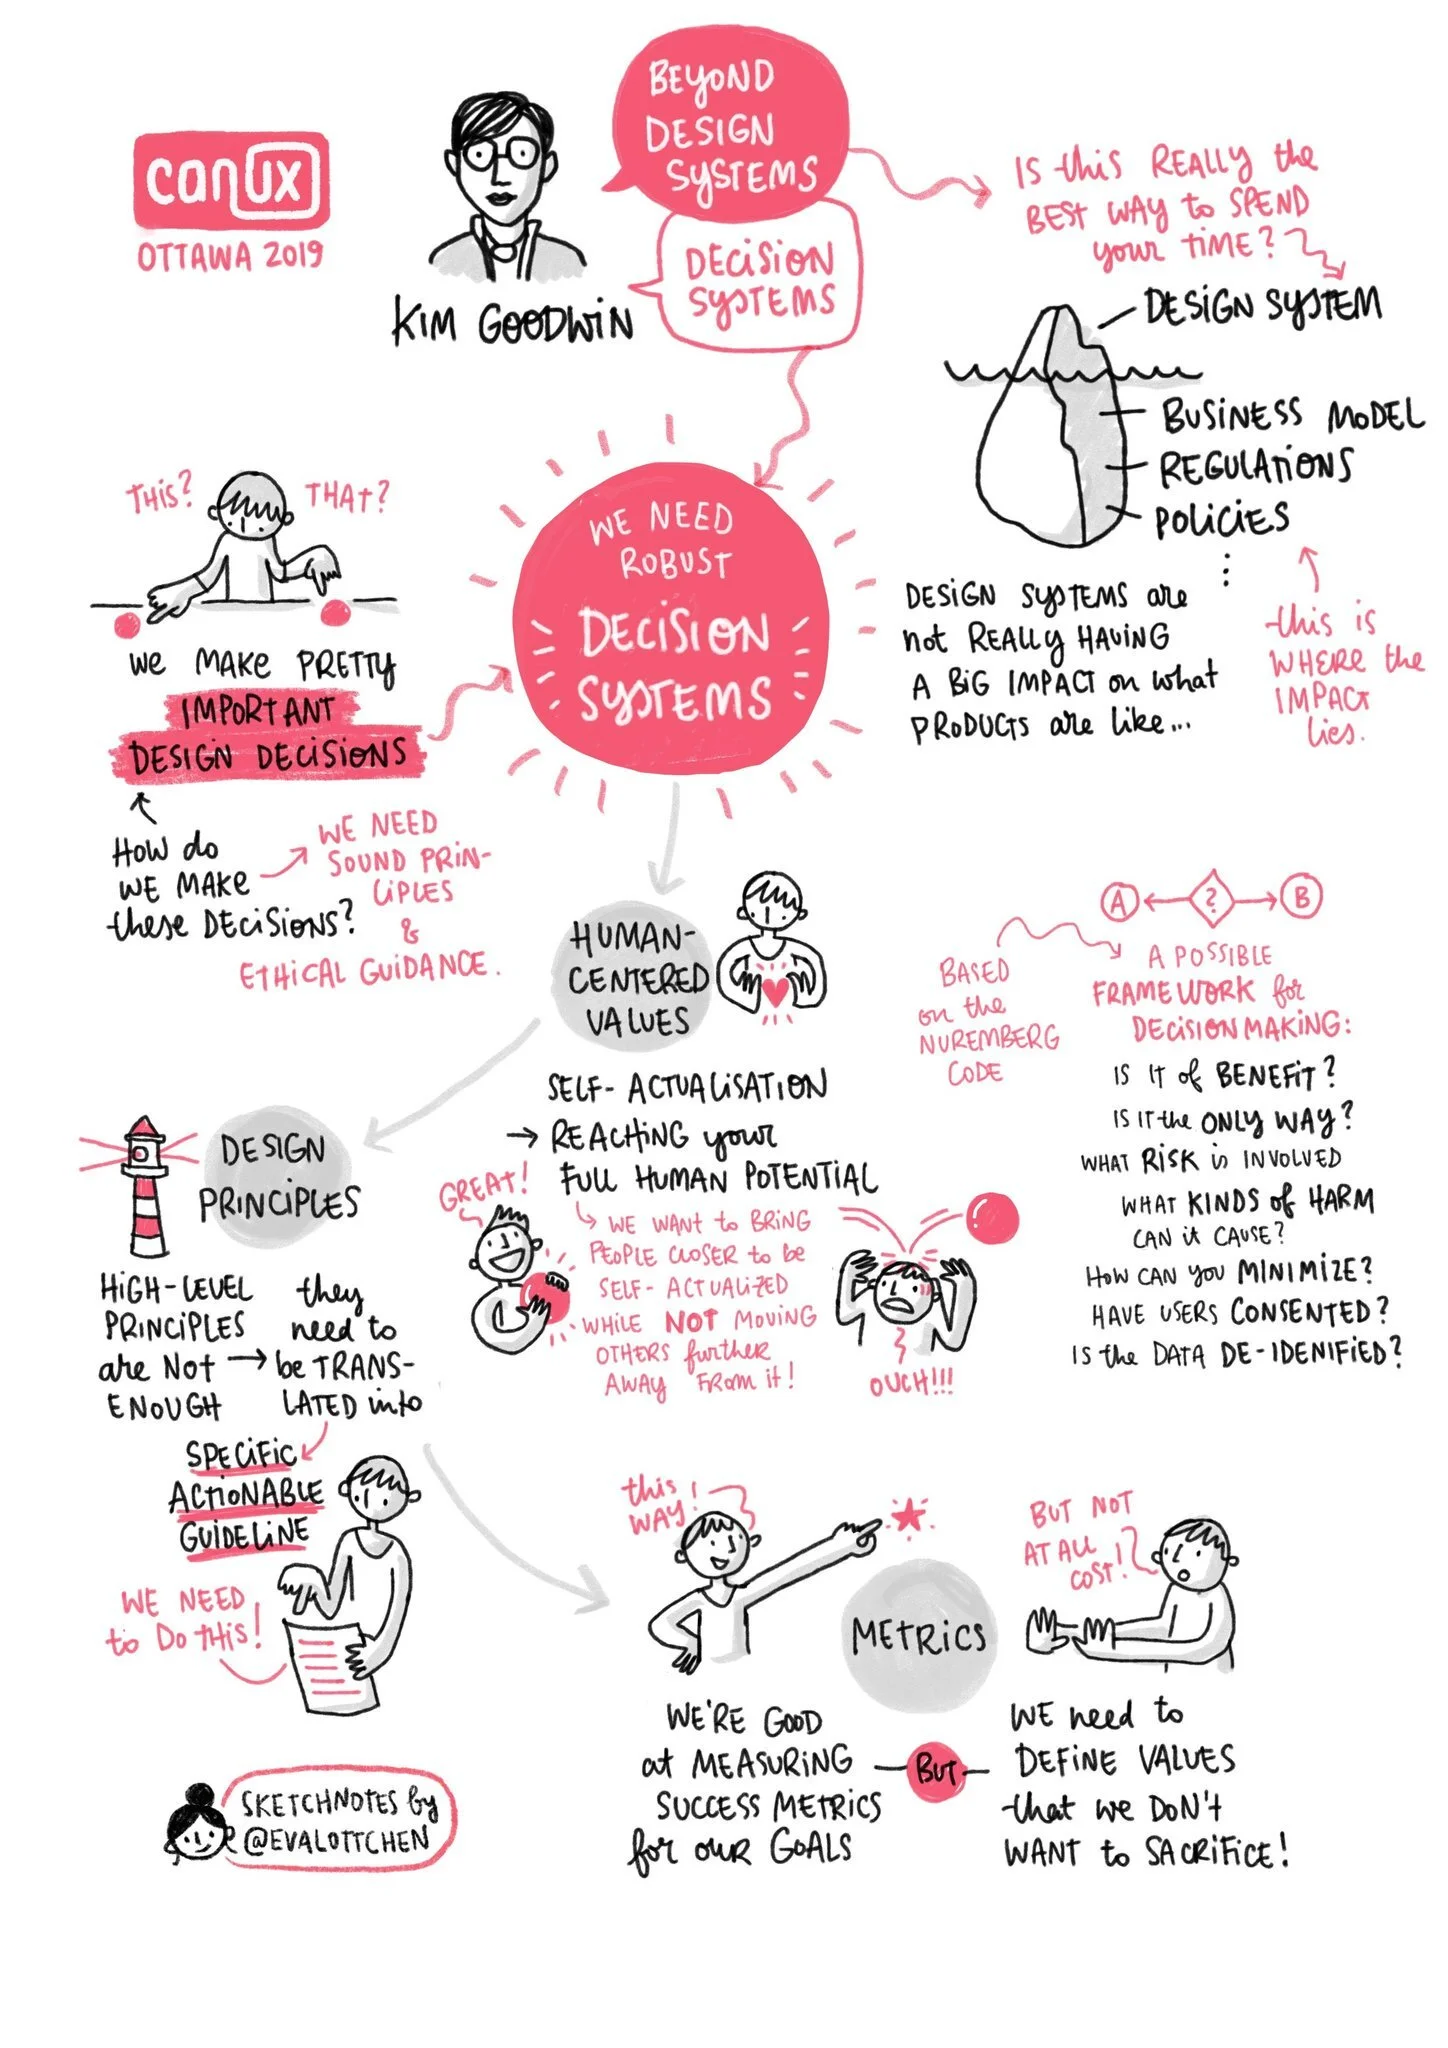 canux
OTTAWA 2019
KIM GOODWIN
BEYOND
DESIGN
SYSTEMS
DECISION
SYSTEMS
IS this REALLY the
BEST WAY to SPEND
your TIME?
DESIGN SYSTEM
BUSINESS MODEL
REGULATIONS
POLICIES
...
DESIGN SYSTEMS are
not REALLY HAVING
A BIG IMPACT on what
PRODUCTS are like...
this is
WHERE the
IMPACT
lies.
THIS?
THAT?
WE MAKE PRETTY
IMPORTANT
DESIGN DECISIONS
HOW do
WE MAKE
these DECISIONS?
WE NEED
SOUND PRIN-
CIPLES
&
ETHICAL GUIDANCE.
WE NEED
ROBUST
DECISION
SYSTEMS
HUMAN-
CENTERED
VALUES
SELF-ACTUALISATION
→ REACHING your
FULL HUMAN POTENTIAL
GREAT!
WE WANT to BRING
PEOPLE CLOSER to be
SELF-ACTUALIZED
WHILE NOT MOVING
OTHERS further
AWAY FROM it!
OUCH!!!
BASED
on the
NUREMBERG
CODE
A ? B
A POSSIBLE
FRAMEWORK for
DECISIONMAKING:
IS IT of BENEFIT?
IS IT the ONLY WAY?
WHAT RISK is INVOLVED
WHAT KINDS of HARM
CAN it CAUSE?
HOW CAN you MINIMIZE?
HAVE USERS CONSENTED?
IS the DATA DE-IDENIFIED?
DESIGN
PRINCIPLES
HIGH-LEVEL
PRINCIPLES
are NOT
ENOUGH
→ they
need to
be TRANS-
LATED into
SPECIFIC
ACTIONABLE
GUIDELINE
WE NEED
to DO THIS!
this
WAY!
METRICS
BUT NOT
AT ALL
COST!
WE'RE GOOD
at MEASURING
SUCCESS METRICS
for our GOALS
BUT
WE need to
DEFINE VALUES
that we DON'T
WANT to SACRIFICE!
SKETCHNOTES by
@EVALOTTCHEN